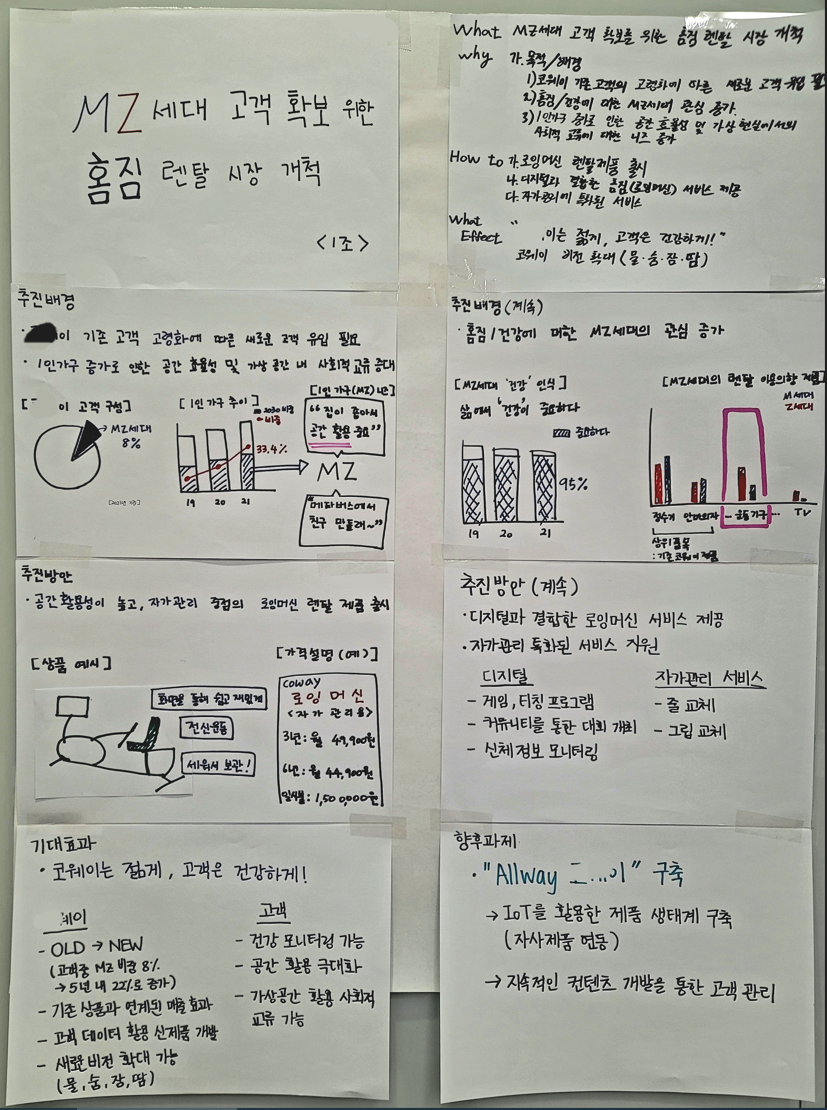 MZ세대 고객 확보 위한
홈짐 렌탈 시장 개척
<1조>
What MZ세대 고객 확보를 위한 홈짐 렌탈 시장 개척
Why 가. 목적/배경
1) 코웨이 기존 고객의 고령화에 따른 새로운 고객 유입
2) 홈짐/건강에 대한 MZ세대 관심 증가.
3) 1인가구 증가로 인한 공간 효율성 및 가상 현실에서의
사회적 교류에 대한 니즈 증가
How to 가. 로잉머신 렌탈제품 출시
나. 디지털과 결합한 홈짐(로잉머신) 서비스 제공
다. 자가관리에 특화된 서비스
What
Effect " 이는 젊게, 고객은 건강하게!"
코웨이 비전 확대 (물·숨·잠·땀)
추진배경
· 이 기존 고객 고령화에 따른 새로운 고객 유입 필요
· 1인가구 증가로 인한 공간 효율성 및 가상 공간 내 사회적 교류 증대
[ 이 고객 구성]
MZ세대
8%
[1인 가구 추이]
2030 비중
비중
33.4%
19 20 21
[1인 가구(MZ) 니즈]
"집이 좁아서
공간 활용 중요"
MZ
"메타버스에서
친구 만들래~"
추진배경 (계속)
· 홈짐/건강에 대한 MZ세대의 관심 증가
[MZ세대 '건강' 인식]
삶에서 '건강'이 중요하다
중요하다
95%
19 20 21
[MZ세대의 렌탈 이용의향 제품]
M세대
Z세대
정수기 안마의자 … 운동기구 … TV
상위품목
: 기존 코웨이 제품
추진방안
· 공간활용성이 높고, 자가관리 중점의 로잉머신 렌탈 제품 출시
[상품 예시]
화면을 통해 쉽고 재밌게
전신운동
세워서 보관!
[가격설명 (예)]
coway
로잉 머신
<자가 관리용>
3년 : 월 49,900원
6년 : 월 44,900원
일시불 : 1,500,000원
추진방안 (계속)
· 디지털과 결합한 로잉머신 서비스 제공
· 자가관리 특화된 서비스 지원
디지털
- 게임, 터칭 프로그램
- 커뮤니티를 통한 대회 개최
- 신체정보 모니터링
자가관리 서비스
- 줄 교체
- 그립 교체
기대효과
· 코웨이는 젊게, 고객은 건강하게!
웨이
- OLD → NEW
(고객중 MZ 비중 8%
→ 5년 내 22%로 증가)
- 기존 상품과 연계된 매출 효과
- 고객 데이터 활용 신제품 개발
- 새로운 비전 확대 가능
(물, 숨, 잠, 땀)
고객
- 건강 모니터링 가능
- 공간 활용 극대화
- 가상공간 활용 사회적
교류 가능
향후과제
· "Allway 이" 구축
→ IoT를 활용한 제품 생태계 구축
(자사제품 연동)
→ 지속적인 컨텐츠 개발을 통한 고객 관리